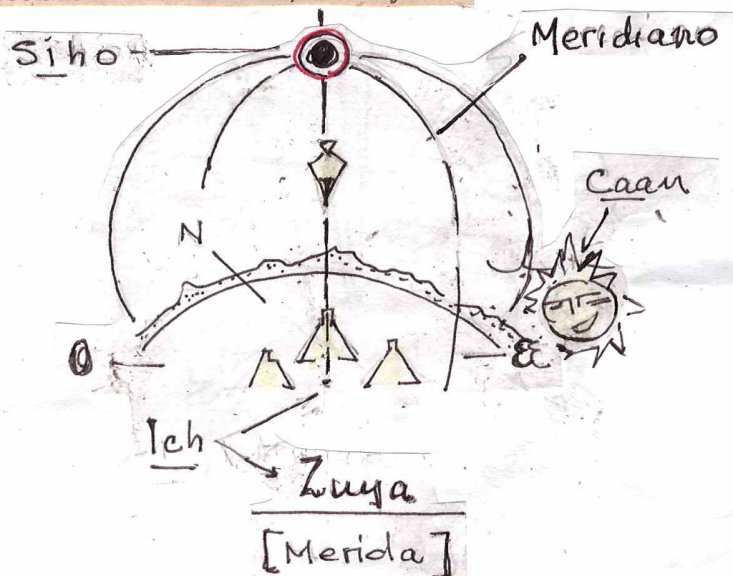 Siho
Meridiano
Caan
N
O
E
Ich
Zuya
[Merida]